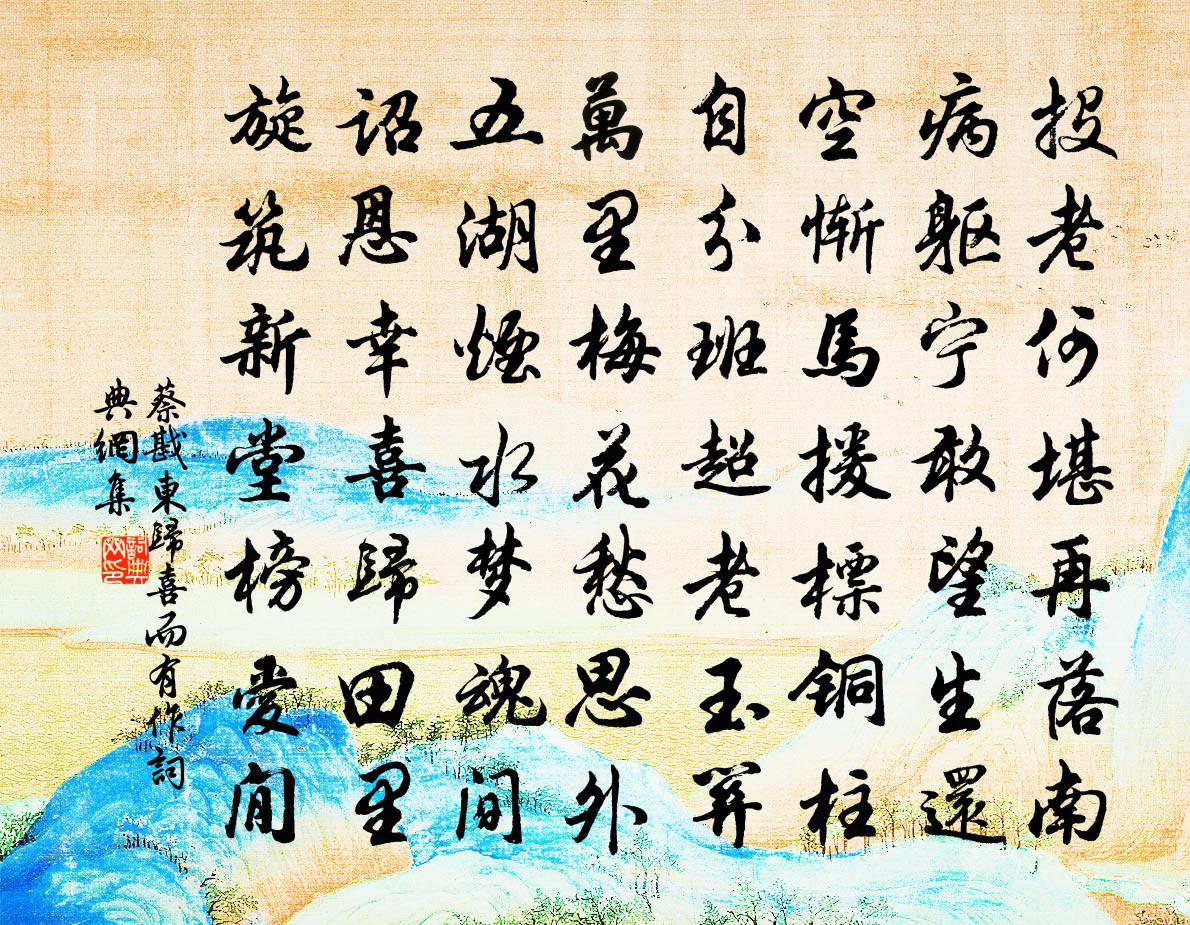 投老何堪再落南
病軀宁敢望生還
空惭馬援標銅柱
自分班超老玉關
萬里梅花愁思外
五湖煙水梦魂间
詔恩幸喜歸田里
旋筑新堂榜愛閒
蔡戡東歸喜而有作詞
典網集
詞典網印